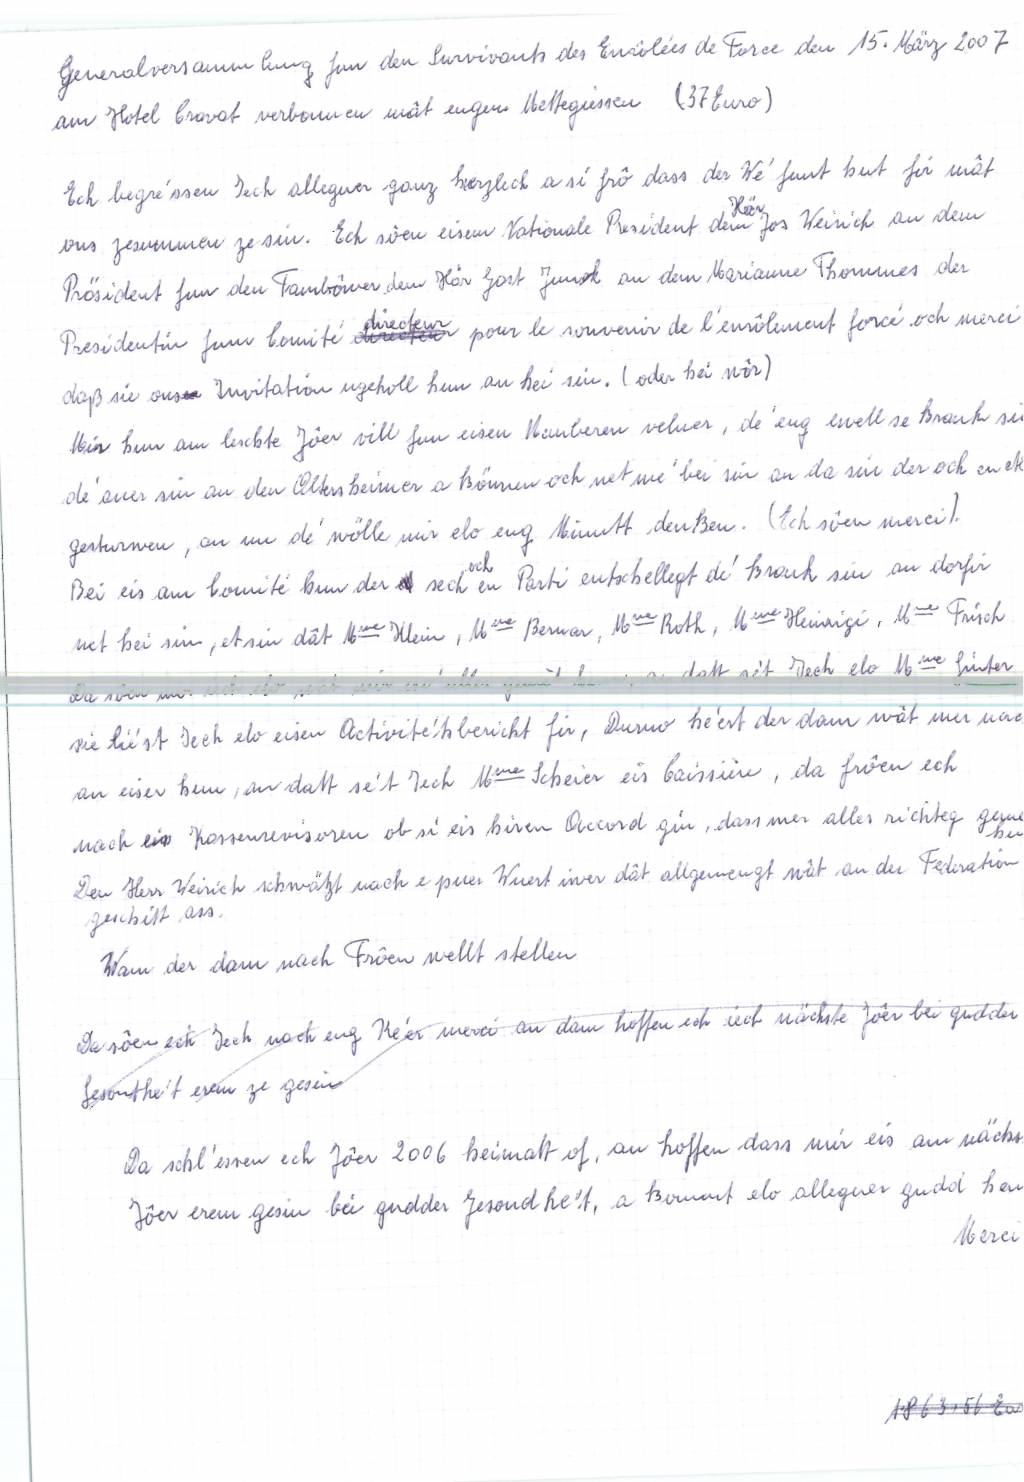 Generalversammlung fun den Survivants des Enrôlées de Force den 15. März 2007
am Hotel Cravat verbonnen mât engem Mettegiessen (37 Euro)
Ech begréssen Iech alleguer ganz herzlech a si frô dass der Wé funt hut fir mât
ons zesummen ze sin. Ech sôen eisem Nationale President dem Här Jos Weirich an dem
Präsident fun den Tambôuer dem Här Gost Junck an dem Marianne Thommes der
Presidentin fum Comité directeur pour le souvenir de l'enrôlement forcé och merci
daß sie ons Invitation ugeholl hun an hei sin. (oder hei wôr)
Mir hun am leschte Jôer vill fun eisen Memberen veluer, dé eng well se Krank sin
dé aner sin an den Altersheimer a Können och net mé bei sin an da sin der och en etl
gesturwen, an un dé wölle mir elo eng Minutt denken. (Ech sôen merci).
Bei eis am Comité hun der sech och en Parti entschellegt dé Krank sin an dorfir
net hei sin, et sin dât Mme Klein, Mme Bernar, Mme Roth, Mme Heinrigi, Mme Frisch
Da sôen mir elo datt sét Iech elo Mme Ginter
sie liést Iech elo eisen Activitétsbericht fir, Duerno héert der dann wât mer nach
an eiser hun, an datt sét Iech Mme Scheier eis Caissière, da frôen ech
nach eis Kassenrevisoren ob si eis hiren Accord gin, dass mer alles richteg gemeet
hun
Den Herr Weirich schwätzt nach e puer Wuert iwer dât allgemengt wât an der Federation
geschitt ass.
Wann der dann nach Frôen wellt stellen
Da sôen ech Iech nach eng Kéer merci an dann hoffen ech iech nächste Jôer bei gudder
Gesonthét erem ze gesin
Da schléssen ech Jôer 2006 heimatt of, an hoffen dass mir eis am nächs
Jôer erem gesin béi gudder Gesondhét, a kommt elo alleguer gudd ham
Merci
1863,56 Eu